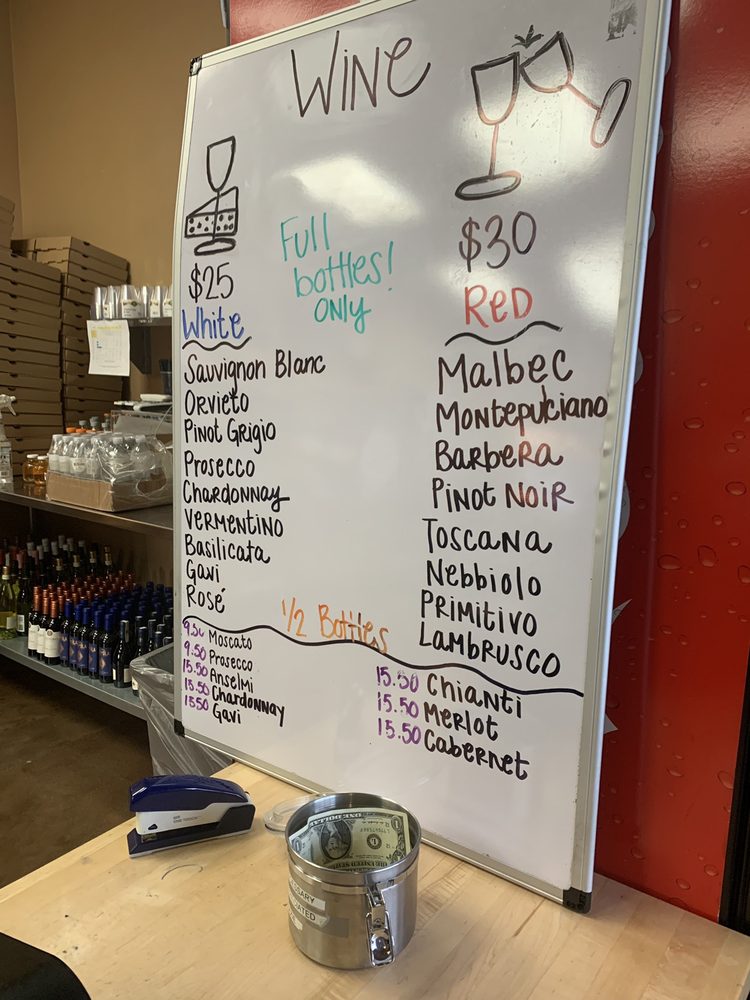 Wine
$25
White
Sauvignon Blanc
Orvieto
Pinot Grigio
Prosecco
Chardonnay
Vermentino
Basilicata
Gavi
Rosé
Full
bottles!
only
$30
Red
Malbec
Montepulciano
Barbera
Pinot Noir
Toscana
Nebbiolo
Primitivo
Lambrusco
1/2 Bottles
9.50 Moscato
9.50 Prosecco
15.50 Anselmi
15.50 Chardonnay
15.50 Gavi
15.50 Chianti
15.50 Merlot
15.50 Cabernet
ONE DOLLAR